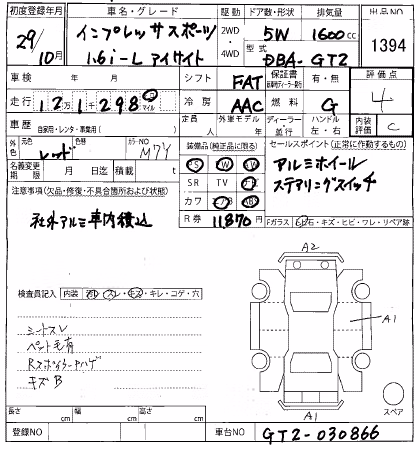 初度登録年月 車名・グレード 駆動 ドア数・形状 排気量 出品NO
29/10月 インプレッサスポーツ 2WD 5W 1600cc 1394
1.6i-L アイサイト 4WD 型式 DBA-GT2
車検 年 月 シフト FAT 保証書 有・無 評価点
走行 12万1千298 km マイル 冷房 AAC 燃料 G 4
車歴 自家用・レンタ・事業用( ) 定員 人 外車モデル 年 ディーラー 並行 ハンドル 左・右 内装評価 C
外色 元色 レッド 色替 カラーNO M7Y 装備品(純正品に限る) セールスポイント(正常に作動するもの)
名義変更期限 月 日迄 積載 t PS PW SW アルミホイール
注意事項(欠品・修復・不具合箇所および状態) SR TV ナビ ステアリングスイッチ
社外アルミ車内積込 カワ エアB ABS
R券 11,870円 Fガラス 飛石・キズ・ヒビ・ワレ・リペア跡
検査員記入 内装 汚れ・スレ・キズ・キレ・コゲ・穴 A2
シートスレ A1
ペット毛有
Rスポイラーハゲ
キズB
スペア
長さ cm 幅 cm 高さ cm A1
登録NO 車台NO GT2-030866